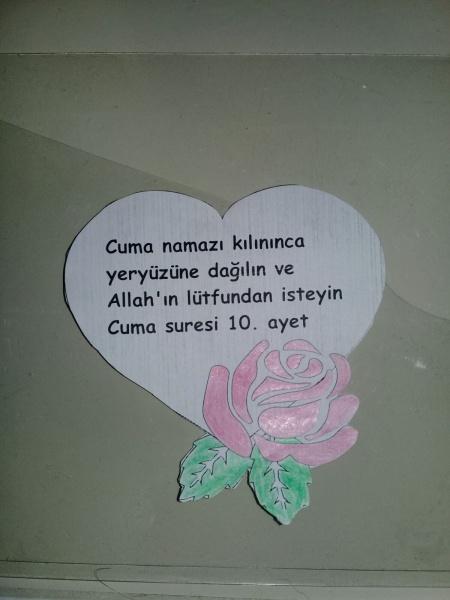 Cuma namazı kılınınca
yeryüzüne dağılın ve
Allah'ın lütfundan isteyin
Cuma suresi 10. ayet